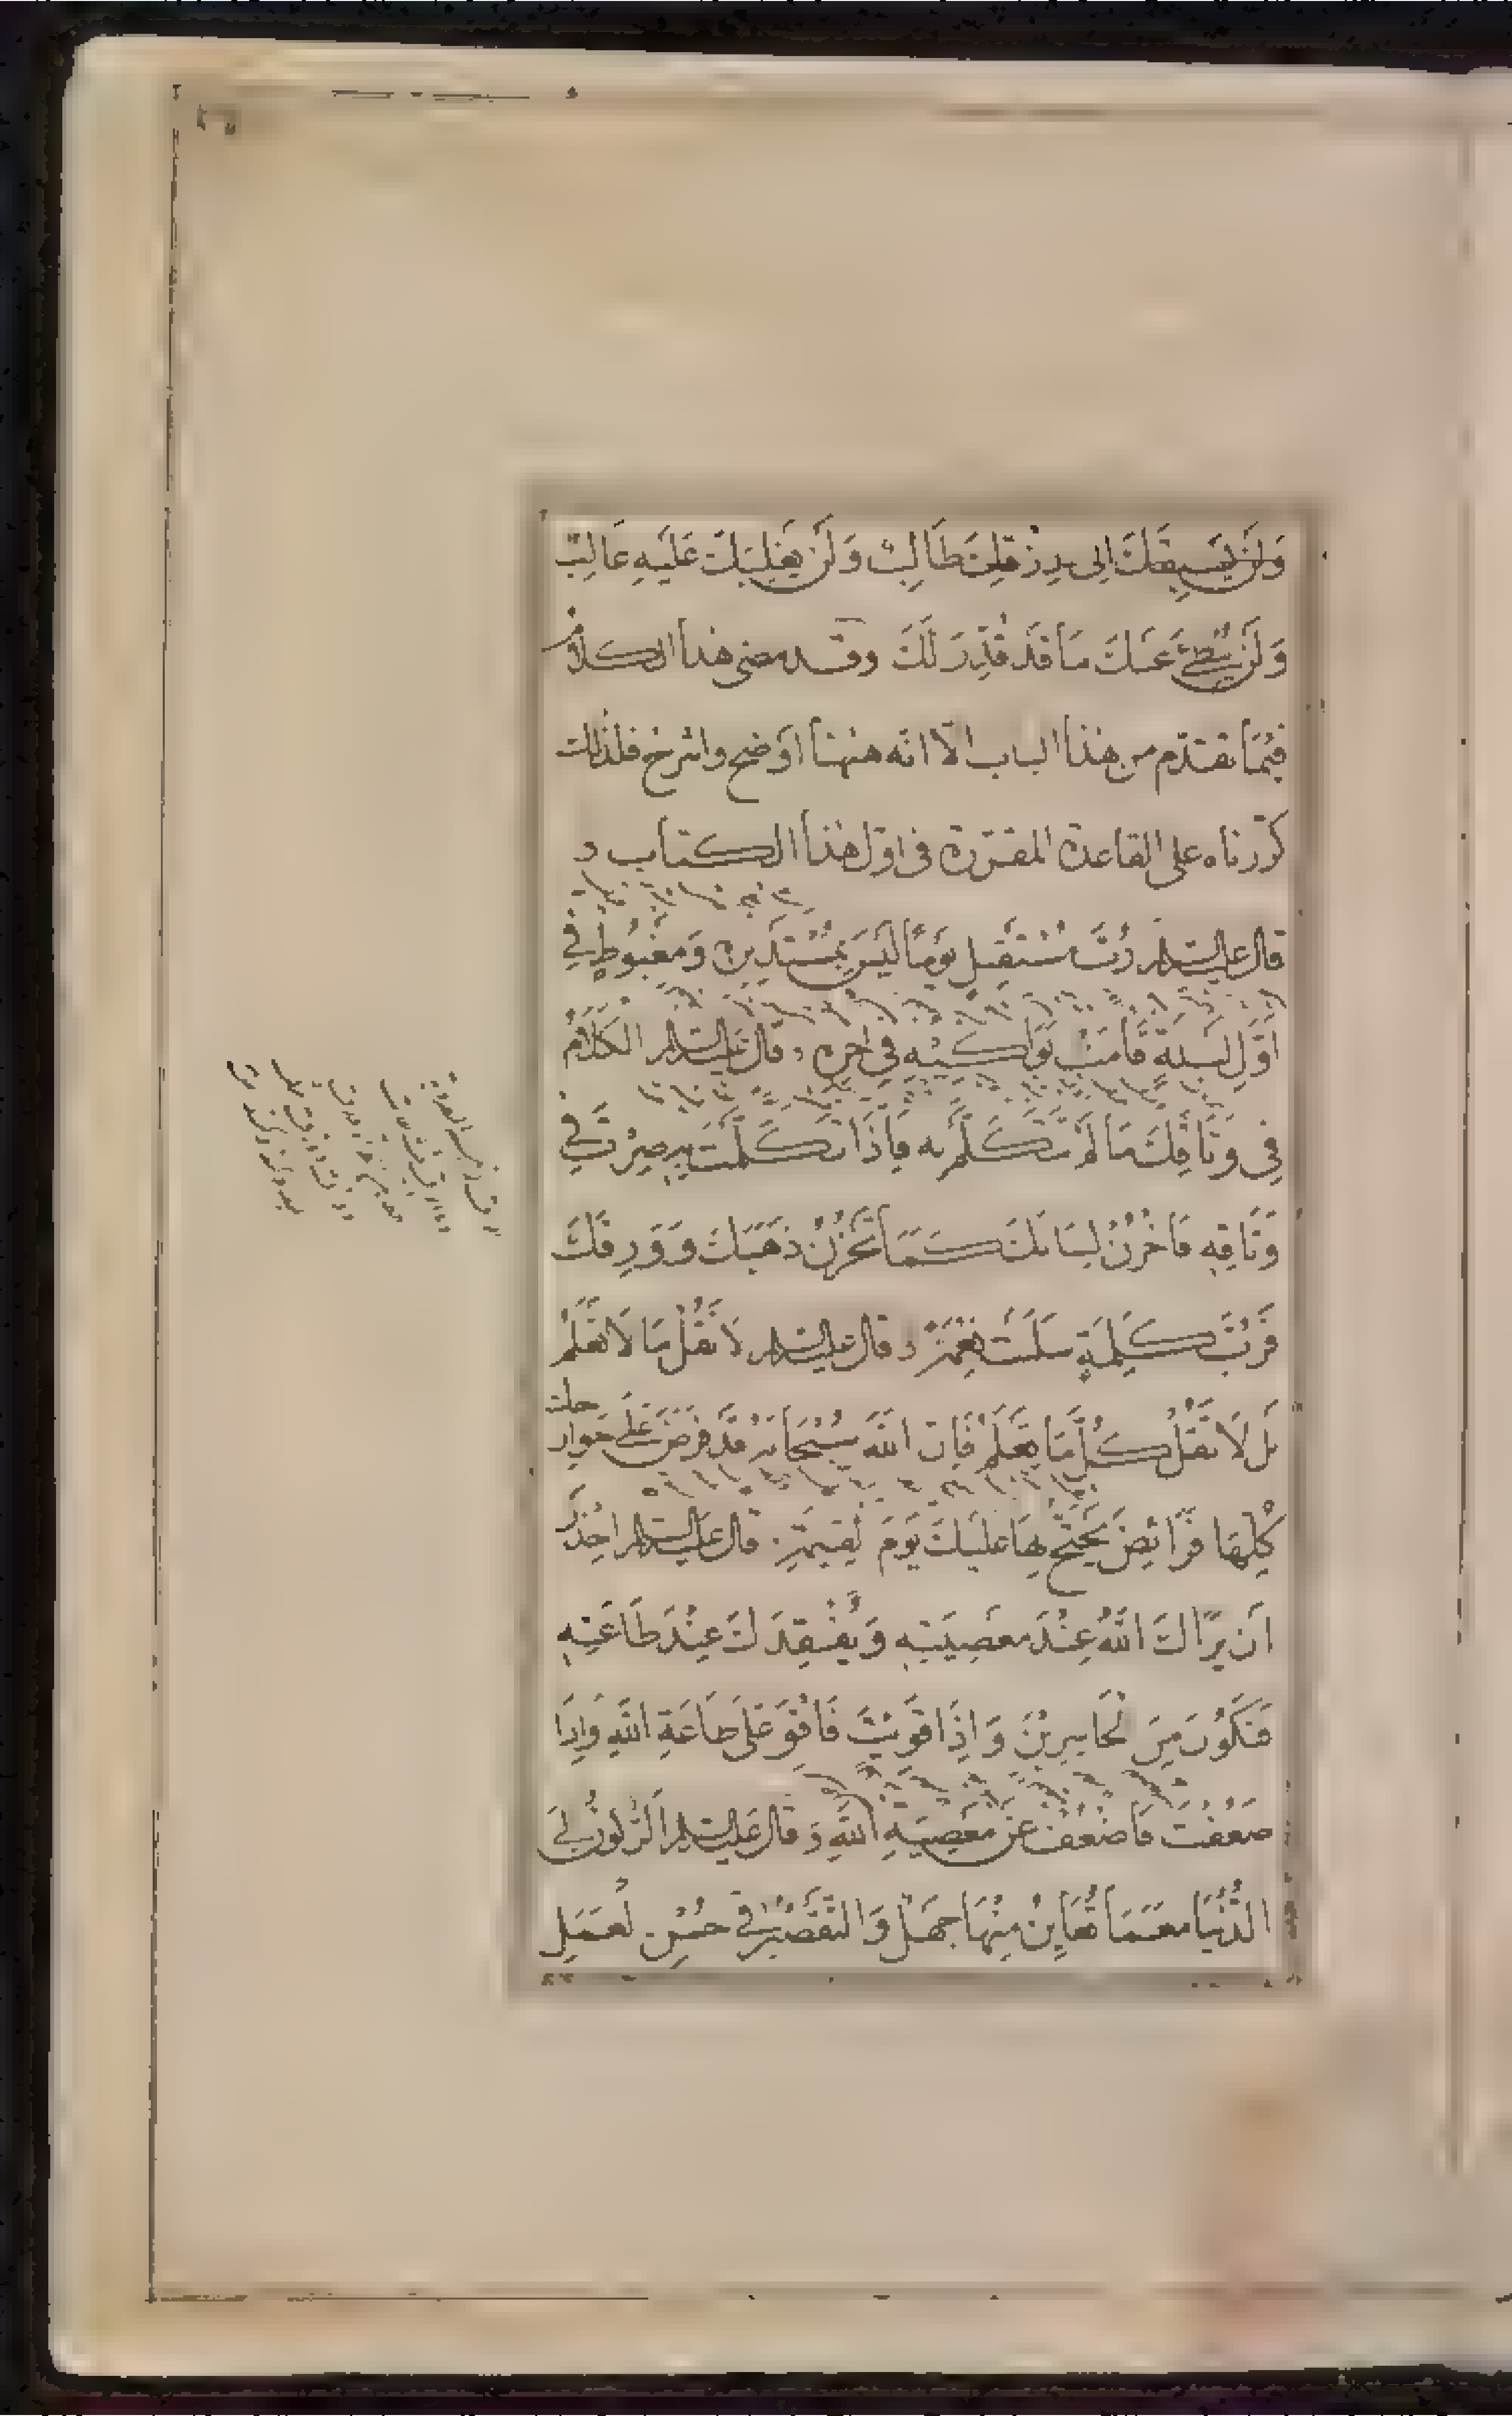 وَلَنْ يَسْبِقَكَ اِلى رِزْقِكَ طَالِبٌ وَلَنْ يَغْلِبَكَ عَلَيْهِ غَالِبٌ
وَلَنْ يُبْطِئَ عَنْكَ مَا قَدْ قُدِّرَ لَكَ وقد مضى هذا الكلام
فِيْمَا تقدّم من هذا الباب الّا انّه هٰهنا اَوْضح واشرح فلذلك
كرّرناه على القاعدة المقرّرة فى اوّل هذا الكتاب و
قال عليه السلام رُبَّ مُسْتَقْبِلٍ يَوْمًا لَيْسَ بِمُسْتَدْبِرِهِ وَمَغْبُوْطٍ فِي
اَوَّلِ لَيْلَةٍ قَامَتْ بَوَاكِيْهِ فِي اٰخِرِهِ و قال عَليه السلام الْكَلَامُ
فِي وَثَاقِكَ مَا لَمْ تَتَكَلَّمْ بِه فَاِذَا تَكَلَّمْتَ بِهِ صِرْتَ فِي
وَثَاقِهِ فَاخْزُنْ لِسَانَكَ كَمَا تَخْزُنُ ذَهَبَكَ وَوَرِقَكَ
فَرُبَّ كَلِمَةٍ سَلَبَتْ نِعْمَةً و قال عليه السلام لَا تَقُلْ مَا لَا تَعْلَمُ
بَلْ لَا تَقُلْ كُلَّ مَا تَعْلَمُ فَاِنَّ اللّٰهَ سُبْحَانَهُ قَدْ فَرَضَ عَلٰى جَوَارِحِكَ
كُلِّهَا فَرَائِضَ يَحْتَجُّ بِهَا عَلَيْكَ يَوْمَ الْقِيٰمَةِ. قال عَليه السلام احْذَرْ
اَنْ يَرَاكَ اللّٰهُ عِنْدَ مَعْصِيَتِهِ وَيَفْقِدَكَ عِنْدَ طَاعَتِهِ
فَتَكُوْنَ مِنَ الْخَاسِرِيْنَ وَاِذَا قَوِيْتَ فَاقْوَ عَلٰى طَاعَةِ اللّٰهِ وَاِذَا
ضَعُفْتَ فَاضْعُفْ عَنْ مَعْصِيَةِ اللّٰهِ وَ قَالَ عَليه السلام اَلرُّكُوْنُ اِلَى
الدُّنْيَا مَعَ مَا تُعَايِنُ مِنْهَا جَهْلٌ وَالتَّقْصِيْرُ فِي حُسْنِ الْعَمَلِ